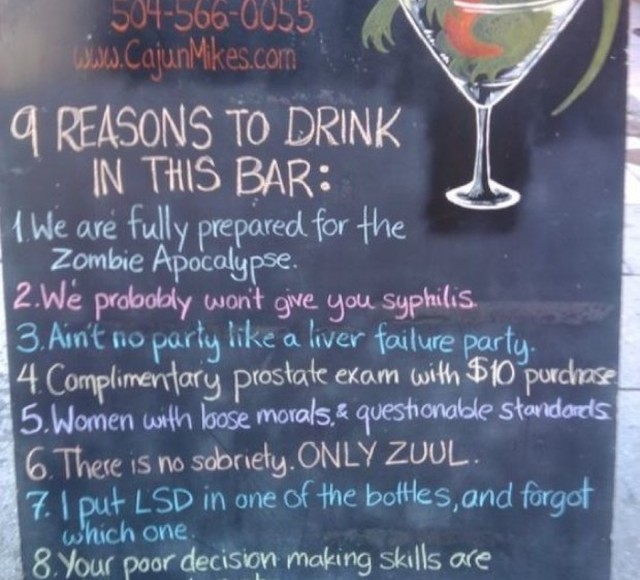 504-566-0055
www.CajunMikes.com
9 REASONS TO DRINK
IN THIS BAR:
1. We are fully prepared for the
Zombie Apocalypse.
2. We probobly won't give you syphilis.
3. Ain't no party like a liver failure party.
4. Complimentary prostate exam with $10 purchase
5. Women with loose morals, & questionable standards.
6. There is no sobriety. ONLY ZUUL.
7. I put LSD in one of the bottles, and forgot
which one.
8. Your poor decision making skills are